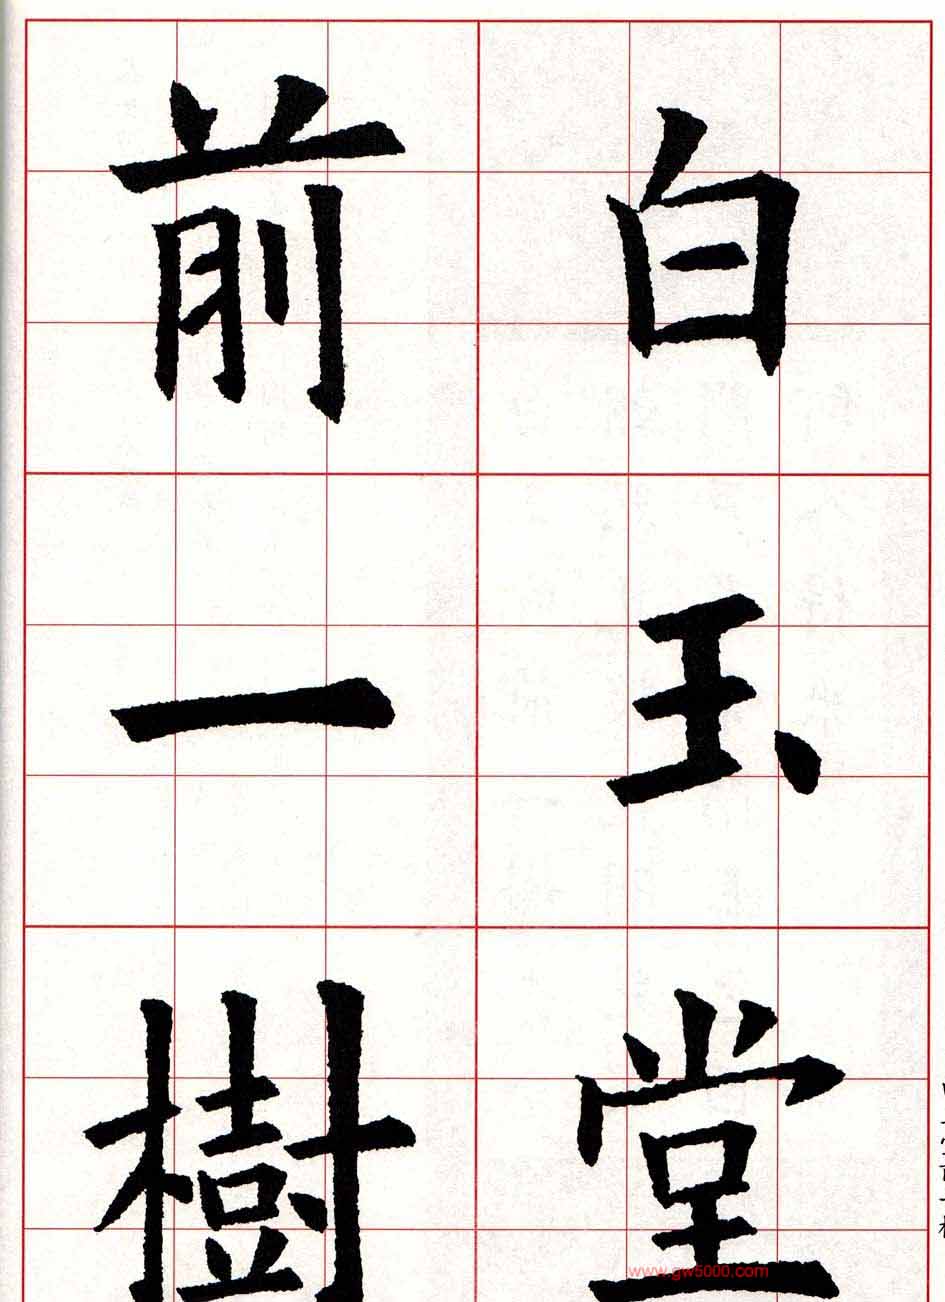 白玉堂
前一樹
www.gw5000.com